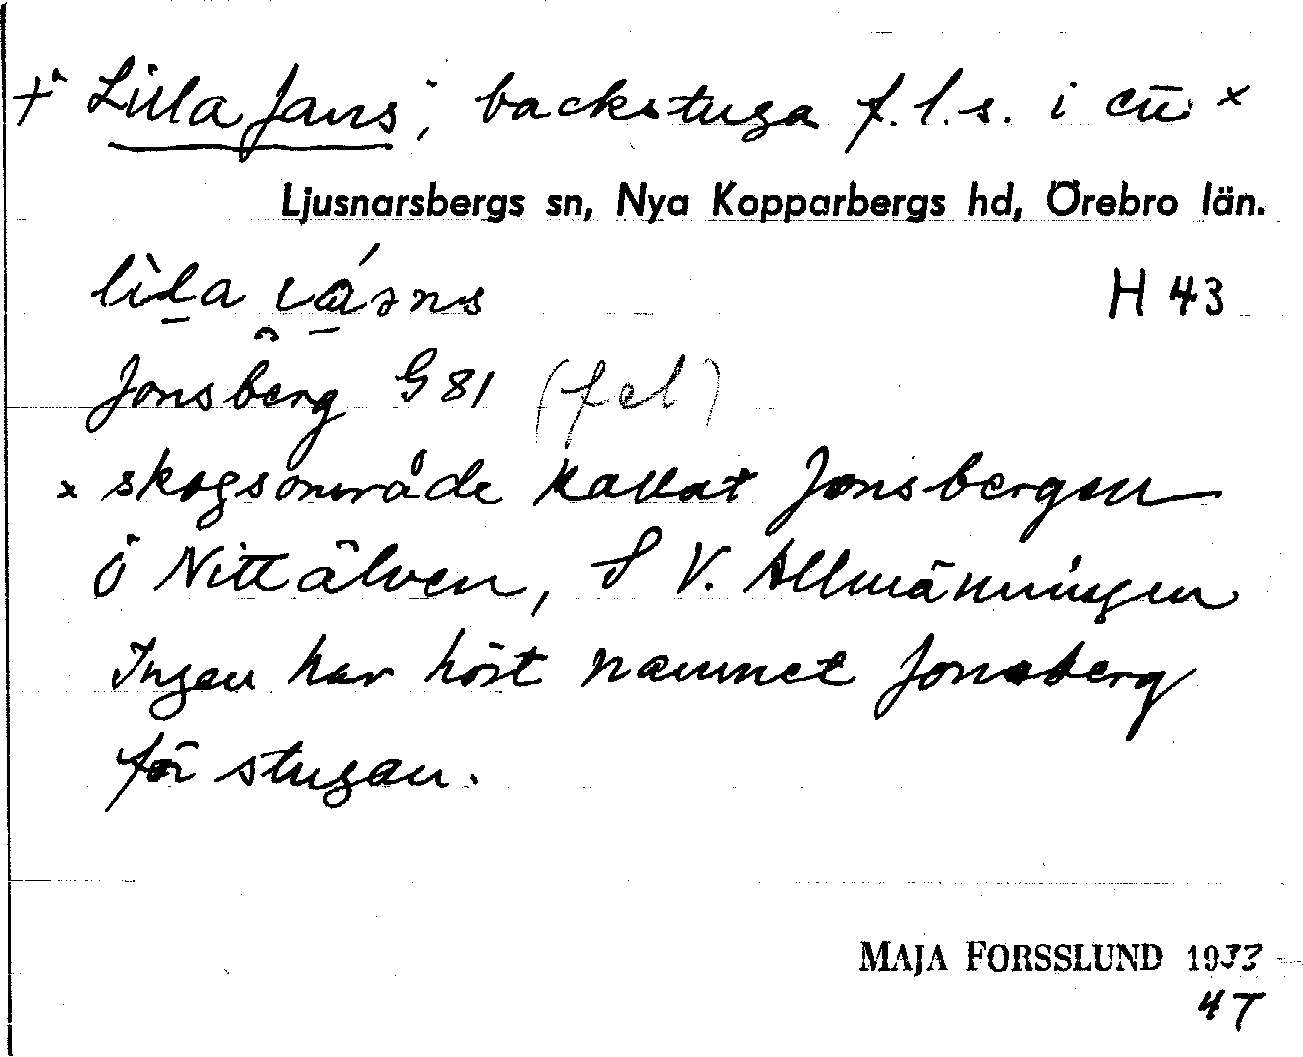 + Lilla Jans, backstuga f.l.s. i ett x
Ljusnarsbergs sn, Nya Kopparbergs hd, Örebro län.
lìla
H 43
Jonsberg G 81 (fel)
x skogsområde kallat Jonsbergen
Ö Nittälven, S V. Allmänningen
Ingen har hört namnet Jonsberg
för stugan.
MAJA FORSSLUND 1933
47